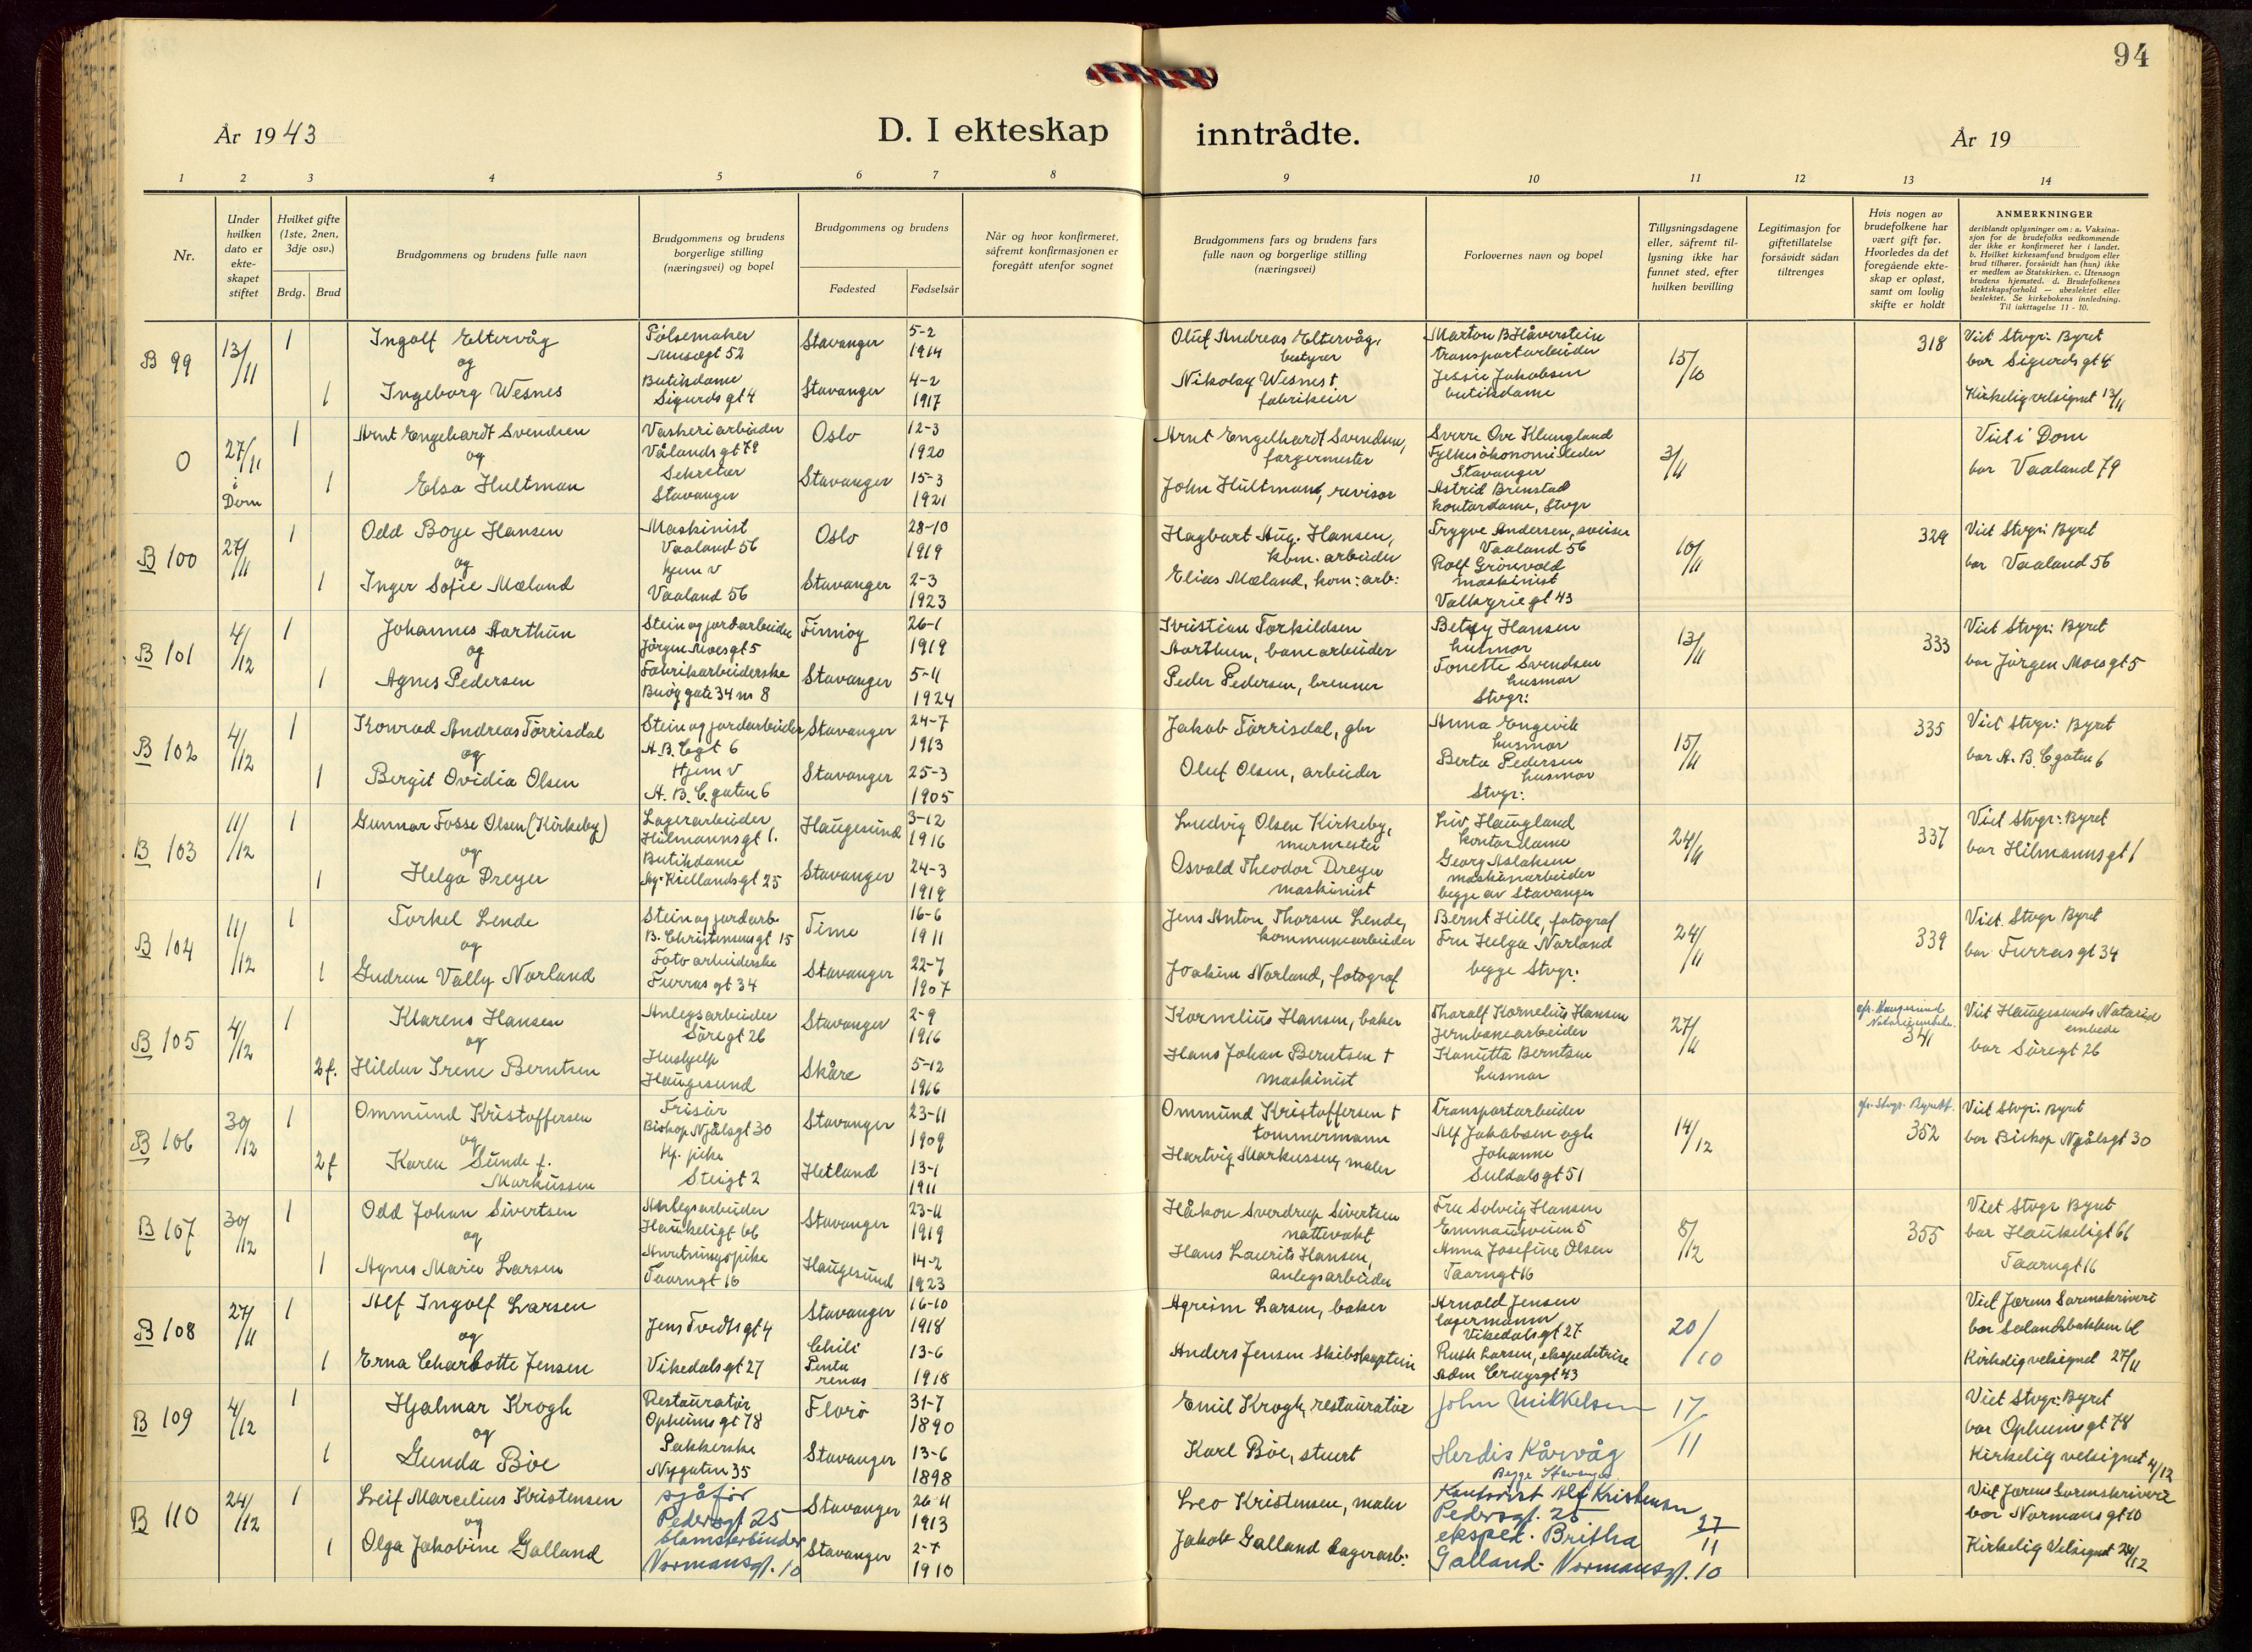 94
År 1943
D. I ekteskap inntrådte.
År 19
1 2 3 4 5 6 7 8 9 10 11 12 13 14
Nr.
Under hvilken dato er ekte-skapet stiftet
Hvilket gifte (1ste, 2nen, 3dje osv.)
Brdg. Brud
Brudgommens og brudens fulle navn
Brudgommens og brudens borgerlige stilling (næringsvei) og bopel
Brudgommens og brudens
Fødested Fødselsår
Når og hvor konfirmeret, såfremt konfirmasjonen er foregått utenfor sognet
Brudgommens fars og brudens fars fulle navn og borgerlige stilling (næringsvei)
Forlovernes navn og bopel
Tillysningsdagene eller, såfremt til-lysning ikke har funnet sted, efter hvilken bevilling
Legitimasjon for giftetillatelse forsåvidt sådan tiltrenges
Hvis nogen av brudefolkene har vært gift før. Hvorledes da det foregående ekte-skap er opløst, samt om lovlig skifte er holdt
ANMERKNINGER
deriblandt oplysninger om: a. Vaksina-sjon for de brudefolks vedkommende der ikke er konfirmeret her i landet. b. Hvilket kirkesamfund brudgom eller brud tilhører, forsåvidt han (hun) ikke er medlem av Statskirken. c. Utensogn brudens hjemsted. d. Brudefolkenes slektskapsforhold — ubeslektet eller beslektet. Se kirkebokens innledning. Til iakttagelse 11 - 10.
B 99 13/11 1 Ingolf Eltervåg Pølsemaker Muségt 52 Stavanger 5-2 1914 Oluf Andreas Eltervåg, bestyrer Marton B Håverstein transportarbeider 15/10 318 Viet Stvgr: Byret bor Sigurds gt 4
og
1 Ingeborg Wesnes Butikdame Sigurds gt 4 Stavanger 4-2 1917 Nikolay Wesnes † fabrikeier Jessie Jakobsen butikdame Kirkelig velsignet 13/11
O 27/11 i Dom 1 Arnt Engehardt Svendsen Vaskeriarbeider Vålandsgt 79 Oslo 12-3 1920 Arnt Engelhardt Svendsen, fargermester Sverre Ove Klungland Fylkesøkonomileder Stavanger 3/11 Viet i Dom bor Vaaland 79
og
1 Elsa Hultman Sekretær Stavanger Stavanger 15-3 1921 John Hultman, revisor Astrid Brenstad kontordame, Stvgr
B 100 27/11 1 Odd Boye Hansen Maskinist Vaaland 56 Oslo 28-10 1919 Hagbart Aug. Hansen, kom. arbeider Trygve Andersen, sveiser Vaaland 56 10/11 329 Viet Stvgr: Byret bor Vaaland 56
og
1 Inger Sofie Mæland hjem v Vaaland 56 Stavanger 2-3 1923 Elias Mæland, kom: arb: Rolf Grönvold maskinist Valkyriegt 43
B 101 4/12 1 Johannes Aarthun Stein og jordarbeider Jörgen Moesgt 5 Finnöy 26-1 1919 Kristian Torkildsen Aarthun, banearbeider Betsy Hansen husmor 13/11 333 Viet Stvgr: Byret bor Jörgen Moesgt 5
og
1 Agnes Pedersen Fabrikarbeiderske Buöygate 34 nr 8 Stavanger 5-11 1924 Peder Pedersen, brenner Tonette Svendsen husmor Stvgr:
B 102 4/12 1 Konrad Andreas Törrisdal Stein og jordarbeider A. B. Cgt 6 Stavanger 24-7 1913 Jakob Törrisdal, gbr Anna Engevik husmor 15/11 335 Viet Stvgr: Byret bor A. B. Cgaten 6
og
1 Bergit Ovidia Olsen Hjem v A. B. C. gaten 6 Stavanger 25-3 1905 Oluf Olsen, arbeider Berta Pedersen husmor Stvgr:
B 103 11/12 1 Gunnar Fosse Olsen (Kirkeby) Lagerarbeider Hilmannsgt 1. Haugesund 3-12 1916 Ludvig Olsen Kirkeby, murmester Liv Haugland kontordame 24/11 337 Viet Stvgr: Byret bor Hilmannsgt 1
og
1 Helga Dreyer Butikdame Ag. Kiellandsgt 25 Stavanger 24-3 1919 Osvald Theodor Dreyer maskinist Georg Aslaksen maskinarbeider begge av Stavanger
B 104 11/12 1 Torkel Lende Stein og jordarb. B. Christensensgt 15 Time 16-6 1911 Jens Anton Thorsen Lende, kommunearbeider Bernt Hille, fotograf 24/11 339 Viet. Stvgr Byret bor Furrasgt 34
og
1 Gudrun Vally Norland Fotoarbeiderske Furrasgt 34 Stavanger 22-7 1907 Joakim Norland, fotograf Fru Helga Norland begge Stvgr:
B 105 4/12 1 Klarens Hansen Anlegsarbeider Söregt 26 Stavanger 2-9 1916 Kornelius Hansen, baker Tharalf Kornelius Hansen Jernbanearbeider 27/11 341 Viet Haugesunds Notarial embede bor Söregt 26
og
2 f. Hildur Irene Berntsen Hushjelp Haugesund Skåre 5-12 1916 Hans Johan Berntsen † maskinist Kanutta Berntsen husmor
B 106 30/12 1 Ommund Kristoffersen Frisör Biskop Njålsgt 30 Stavanger 23-11 1909 Ommund Kristoffersen † tømmermann Transportarbeider Alf Jakobsen ogh Johanne Suldalsgt 51 14/12 352 Viet Stvgr: Byret bor Biskop Njålsgt 30
og
2 f Karen Sunde f. Markussen Hj. pike Steigt 2 Hetland 13-1 1911 Hartvig Markussen, maler
B 107 30/12 1 Odd Johan Sivertsen Anlegsarbeider Haukeligt 66 Stavanger 23-11 1919 Håkon Sverdrup Sivertsen nattevakt Fru Solveig Hansen Emmausveien 5 8/12 355 Viet Stvgr Byret bor Haukeligt 66
og
1 Agnes Marie Larsen Anretningspike Taarngt 16 Haugesund 14-2 1923 Hans Laurits Hansen, anlegsarbeider Anna Josefine Olsen Taarngt 16 Taarngt 16
B 108 27/11 1 Alf Ingolf Larsen Jens Tvedtsgt 4 Stavanger 16-10 1918 Agreim Larsen, baker Arnold Jensen lagermann Vikedalsgt 27 20/10 Viet Jærens Sorenskriveri
og
1 Erna Charlotte Jensen Vikedalsgt 27 Chili Penta renas 13-6 1918 Anders Jensen Skibskaptein Ruth Larsen, ekspeditrise Adm Cruysgt 43 Kirkelig velsignet 27/11
B 109 4/12 1 Hjalmar Krogh Restauratör Opheimsgt 78 Florö 31-7 1890 Emil Krogh, restauratör John Mikkelsen 17/11 Viet Stvgr: Byret bor Opheimgt 78
og
1 Gunda Böe Pakkerske Nygaten 35 Stavanger 13-6 1898 Karl Böe, stuert Herdis Kårvåg Begge Stavanger Kirkelig velsignet 4/12
B 110 24/12 1 Leif Marcelius Kristensen sjåför Pedersgt 25 Stavanger 26-11 1913 Leo Kristensen, maler Kontorist Alf Kristensen Pedersgt. 25 27/11 Viet Jærens Sorenskriveri bor Normansgt 10
og
1 Olga Jakobine Galland blomsterbinder Normansgt. 10 Stavanger 2-7 1910 Jakob Galland Lagerarb: eksped. Britha Galland Normansgt. 10 Kirkelig Velsignet 24/12